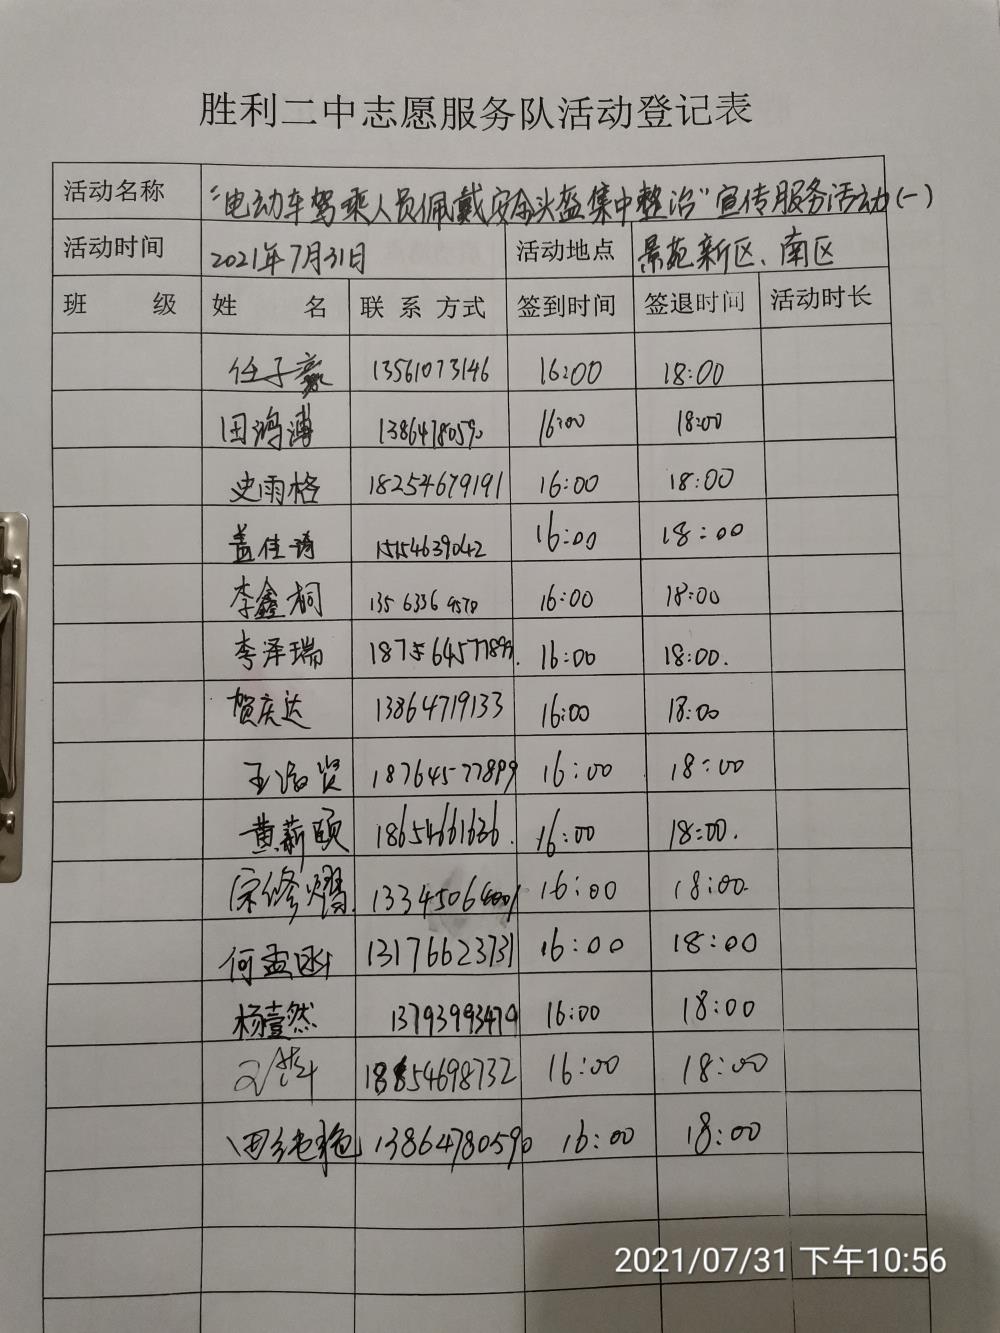 胜利二中志愿服务队活动登记表
活动名称 “电动车驾乘人员佩戴安全头盔集中整治”宣传服务活动(一)
活动时间 2021年7月31日 活动地点 景苑新区、南区
班 级 姓 名 联系方式 签到时间 签退时间 活动时长
任子豪 13561073146 16:00 18:00
田鸿溥 13864780590 16:00 18:00
史雨格 18254679191 16:00 18:00
盖佳琦 15154639042 16:00 18:00
李鑫桐 13563369570 16:00 18:00
李泽瑞 16:00 18:00.
贺庆达 13864719133 16:00 18:00
王 贤 18764577899 16:00 18:00
黄薪颐 18654661636. 16:00 18:00.
宗修熠. 16:00 18:00.
何孟 13176623731 16:00 18:00
杨壹然 13793993479 16:00 18:00
18854698732 16:00 18:00
田纯艳 13864780590 16:00 18:00
2021/07/31 下午10:56